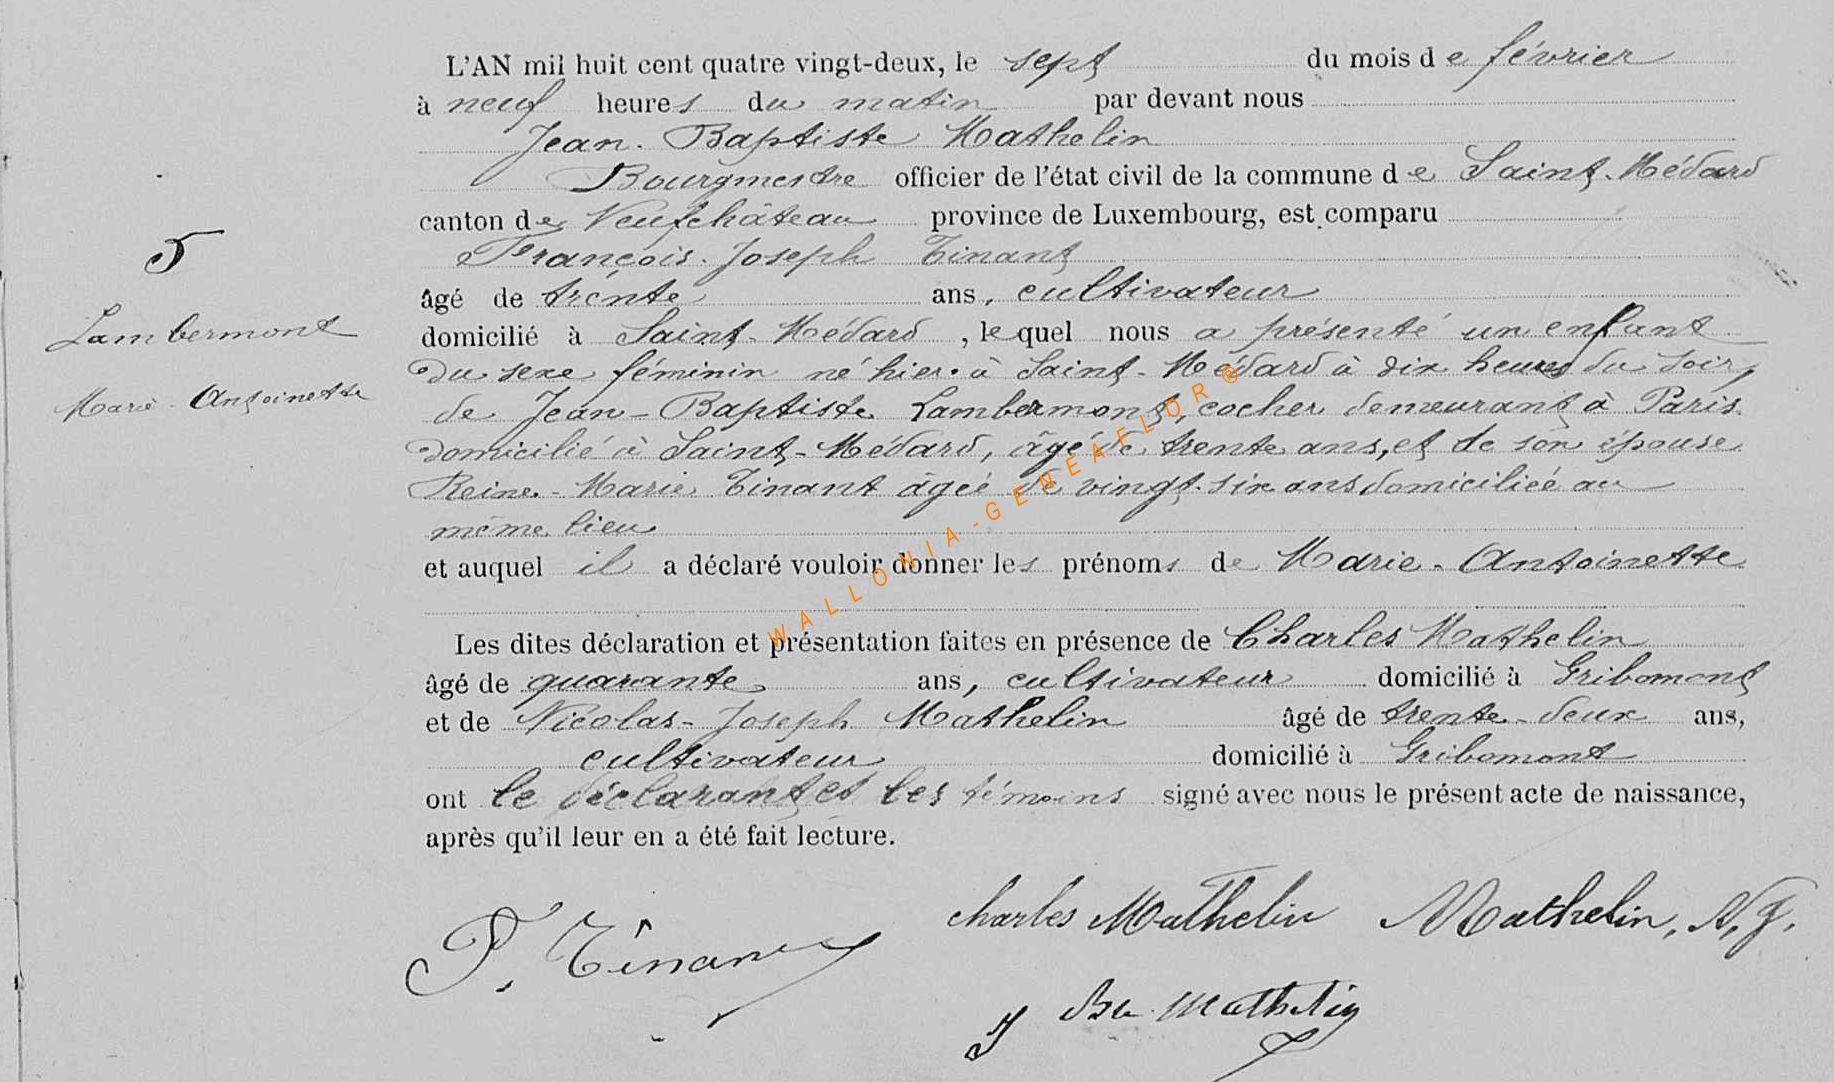 L'AN mil huit cent quatre vingt-deux, le sept du mois de février
à neuf heures du matin par devant nous
Jean-Baptiste Mathelin
Bourgmestre officier de l'état civil de la commune de Saint-Médard
canton de Neufchâteau province de Luxembourg, est comparu
François-Joseph Tinant
âgé de trente ans, cultivateur
domicilié à Saint-Médard, lequel nous a présenté un enfant
du sexe féminin né hier à Saint-Médard à dix heures du soir,
de Jean-Baptiste Lambermont, cocher demeurant à Paris
domicilié à Saint-Médard, âgé de trente ans, et de son épouse
Reine-Marie Tinant âgée de vingt-six ans domiciliée au
même lieu
et auquel il a déclaré vouloir donner les prénoms de Marie-Antoinette
Les dites déclaration et présentation faites en présence de Charles Mathelin
âgé de quarante ans, cultivateur domicilié à Gribomont
et de Nicolas-Joseph Mathelin âgé de trente-deux ans,
cultivateur domicilié à Gribomont
ont le déclarant et les témoins signé avec nous le présent acte de naissance,
après qu'il leur en a été fait lecture.
5
Lambermont
Marie-Antoinette
F. Tinant
Charles Mathelin
Mathelin, N. J.
J Bte Mathelin
WALLONIA-GENEAFLOR ®